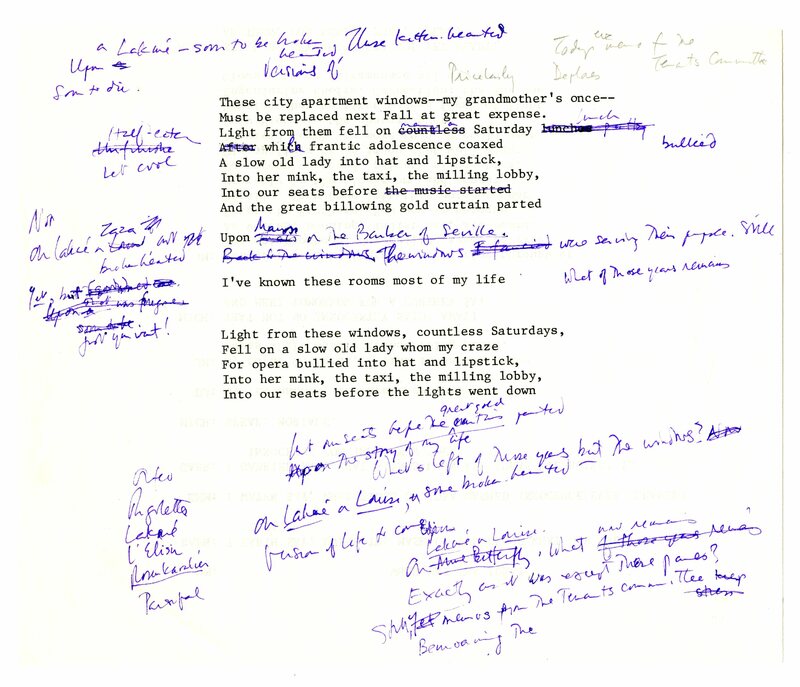 a Lakmé – soon to be broken hearted These kitten-hearted
Upon a
versions of
soon to die.
Today the memo from the
Tenants Committee
Deplores
These city apartment windows--my grandmother's once--
Must be replaced next Fall at great expense.
Light from them fell on countless Saturday lunch
Let cool
After which frantic adolescence coaxed
bullied
A slow old lady into hat and lipstick,
Into her mink, the taxi, the milling lobby,
Into our seats before the music started
And the great billowing gold curtain parted
Not
Upon Manon or The Barber of Seville.
On Lakmé or Zaza not yet
broken hearted
Back to the windows. The windows I fancied were serving their purpose. Still
I've known these rooms most of my life
What of those years remains
Yet, but
Just you wait!
Light from these windows, countless Saturdays,
Fell on a slow old lady whom my craze
For opera bullied into hat and lipstick,
Into her mink, the taxi, the milling lobby,
Into our seats before the lights went down
great gold
Into our seats before the curtain parted
Upon the story of my life
What's left of those years but the windows?
On Lakmé or Louise, or some broken-hearted
Version of life to come
Orfeo
Rigoletto
Lakmé
L'Elisir
Rosenkavalier
Parsifal
Lakmé or Louise.
On Butterfly. What now remains
of those years remains
Exactly as it was except these panes?
Still, memos from the Tenants Committee keep
Bemoaning the